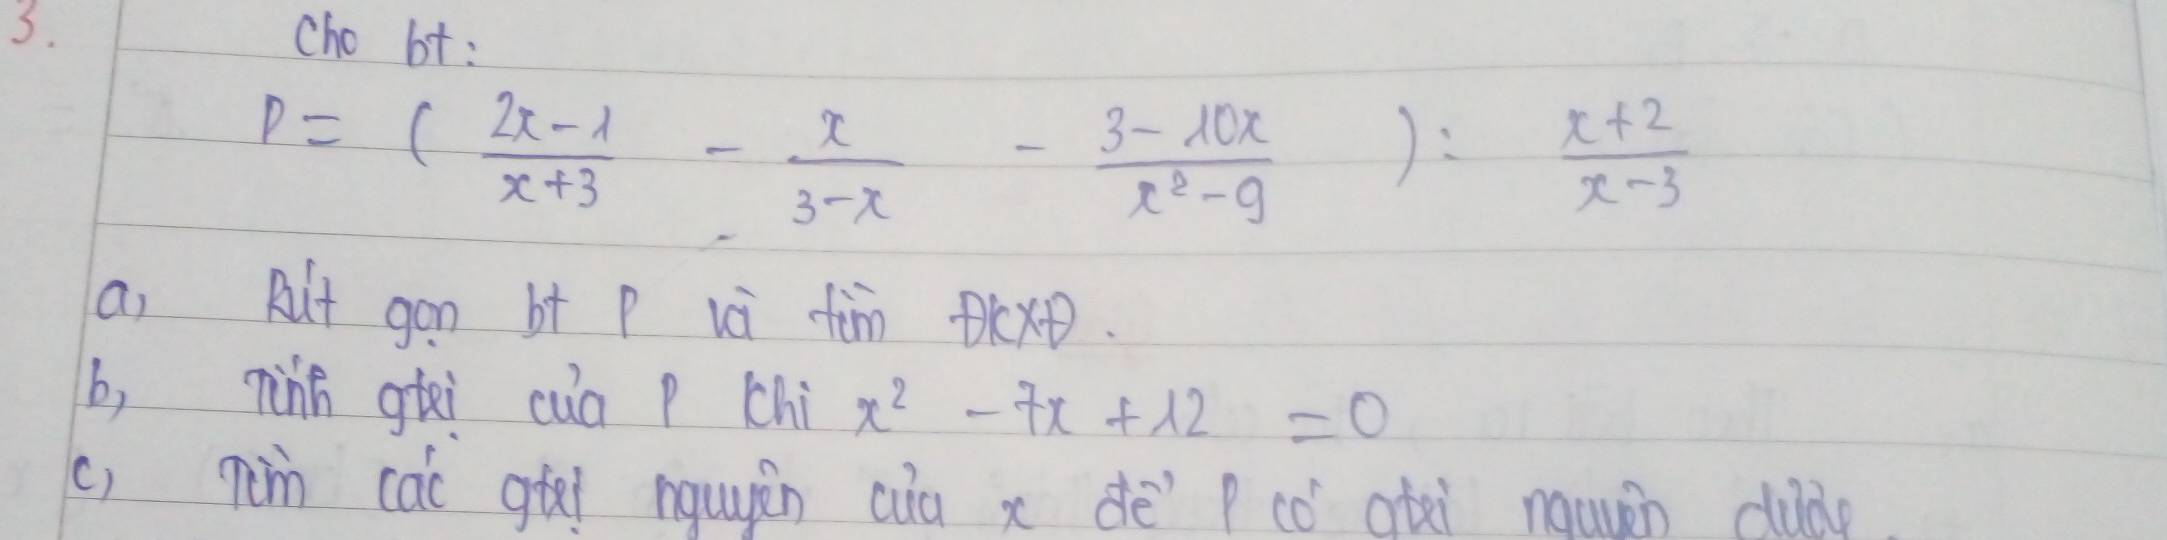 3.
Cho bt:
P = ( \frac{2x-1}{x+3} - \frac{x}{3-x} - \frac{3-10x}{x^2-9} ) : \frac{x+2}{x-3}
a, Rút gọn bt P và tìm ĐKXĐ.
b, Tính gtrị của P khi x² - 7x + 12 = 0
c, Tìm các gtrị nguyên của x để P có gtrị nguyên dương.